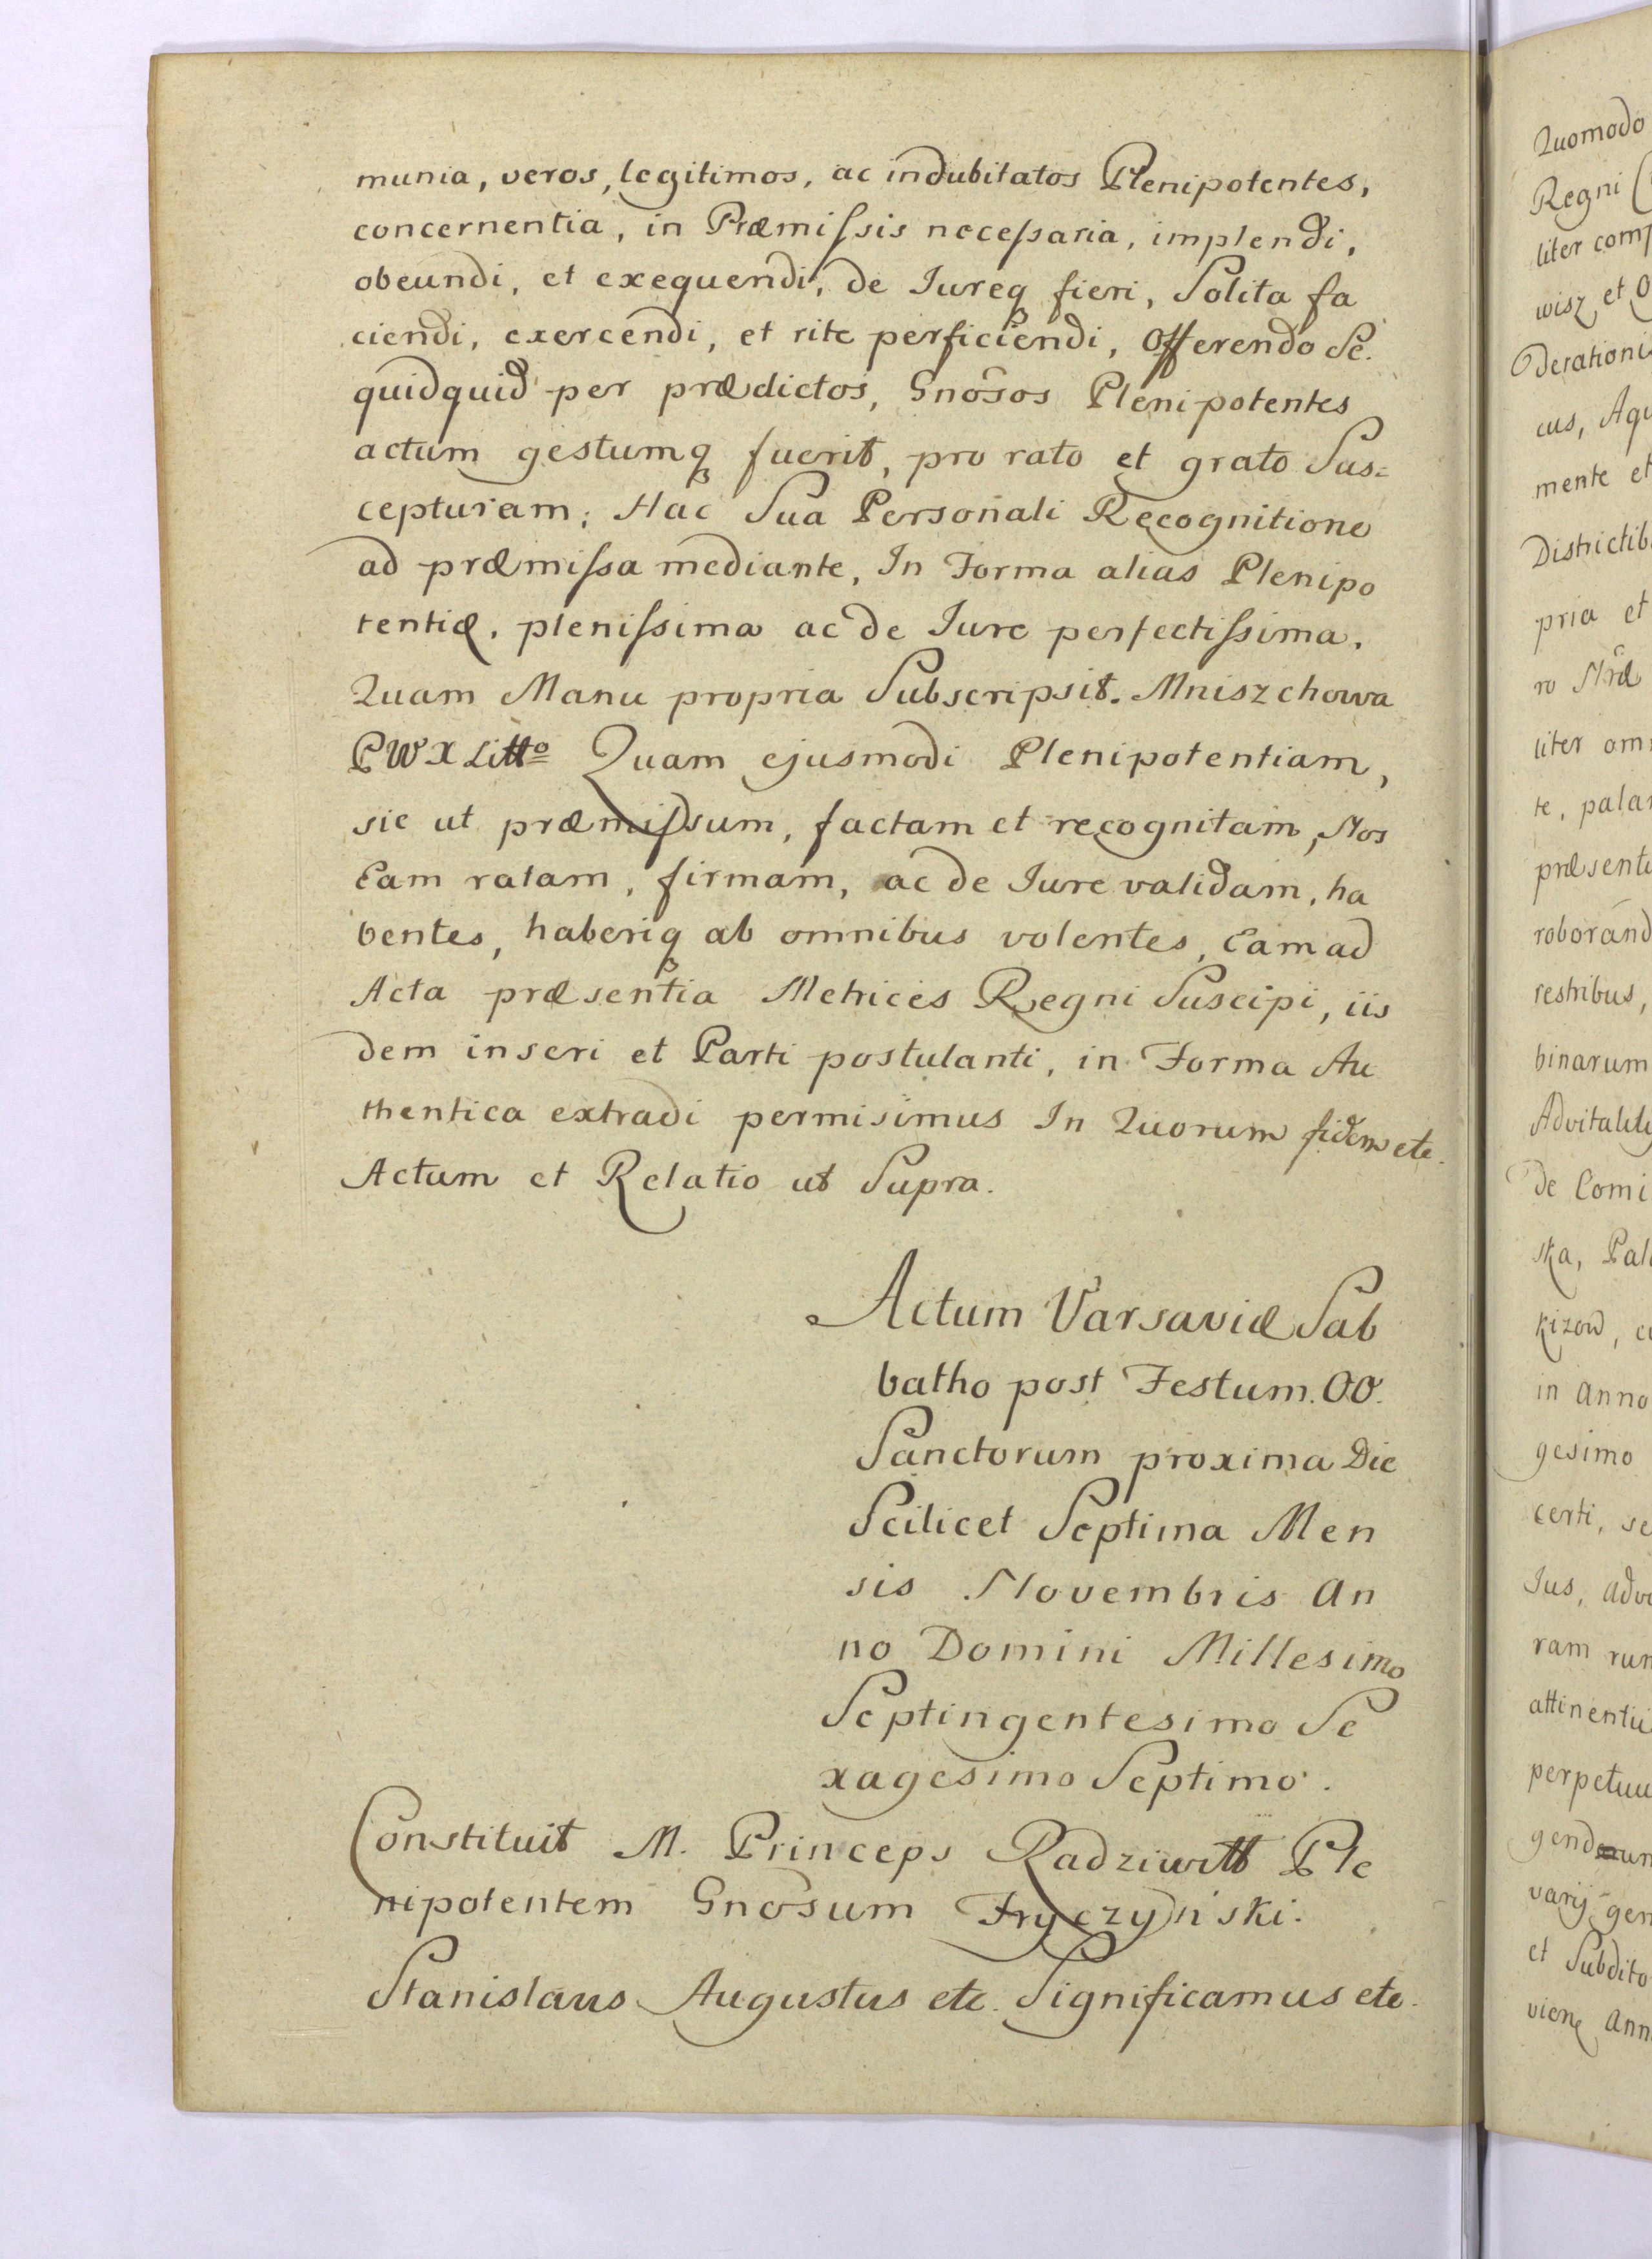 munia, veros, legitimos, ac indubitatos Plenipotentes,
concernentia, in Præmiſsis neceſsaria, implendi,
obeundi, et exequendi, de Iureq fieri, Solita fa
ciendi, exercendi, et rite perficiendi, Offerendo Se.
quidquid per prædictos, Gnosos Plenipotentes
actum gestumq fuerit, pro rato et grato Sus=
cepturam; Hac Sua Personali Recognitione
ad præmiſsa mediante, In Forma alias Plenipo
tentiæ, pleniſsima ac de Iure perfectiſsima.
Quam Manu propria Subscripsit. Mniszchowa
PWX Litto Quam ejusmodi Plenipotentiam,
sic ut præmiſsum, factam et recognitam, Nos
Eam ratam, firmam, ac de Iure validam, ha
bentes, haberiq ab omnibus volentes, Eam ad
Acta præsentia Metrices Regni Suscipi, iis
dem inseri et Parti postulanti, in Forma Au
thentica extradi permisimus In Quorum fidem etc.
Actum et Relatio ut Supra.
Actum Varsaviæ Sab
batho post Festum OO.
Sanctorum proxima Die
Scilicet Septima Men
sis Novembris An
no Domini Millesimo
Septingentesimo Se
xagesimo Septimo.
Constituit M. Princeps Radziwiłł Ple
nipotentem Gnosum Fryczyński.
Stanislaus Augustus etc. Significamus etc.
Quomodo
Regni
liter comp
wisz, et O
derationis
cus, Aqu
mente et
Districtib
pria et
ro Nræ
liter om
te, palam
præsenti
roborand
restribus,
binarum
Advitalit
de Comi
ska, Pal
kizow, c
in Anno
gesimo
certi, se
Ius, adv
ram rum
attinentii
perpetuu
varij gen
et Subdito
vione Ann